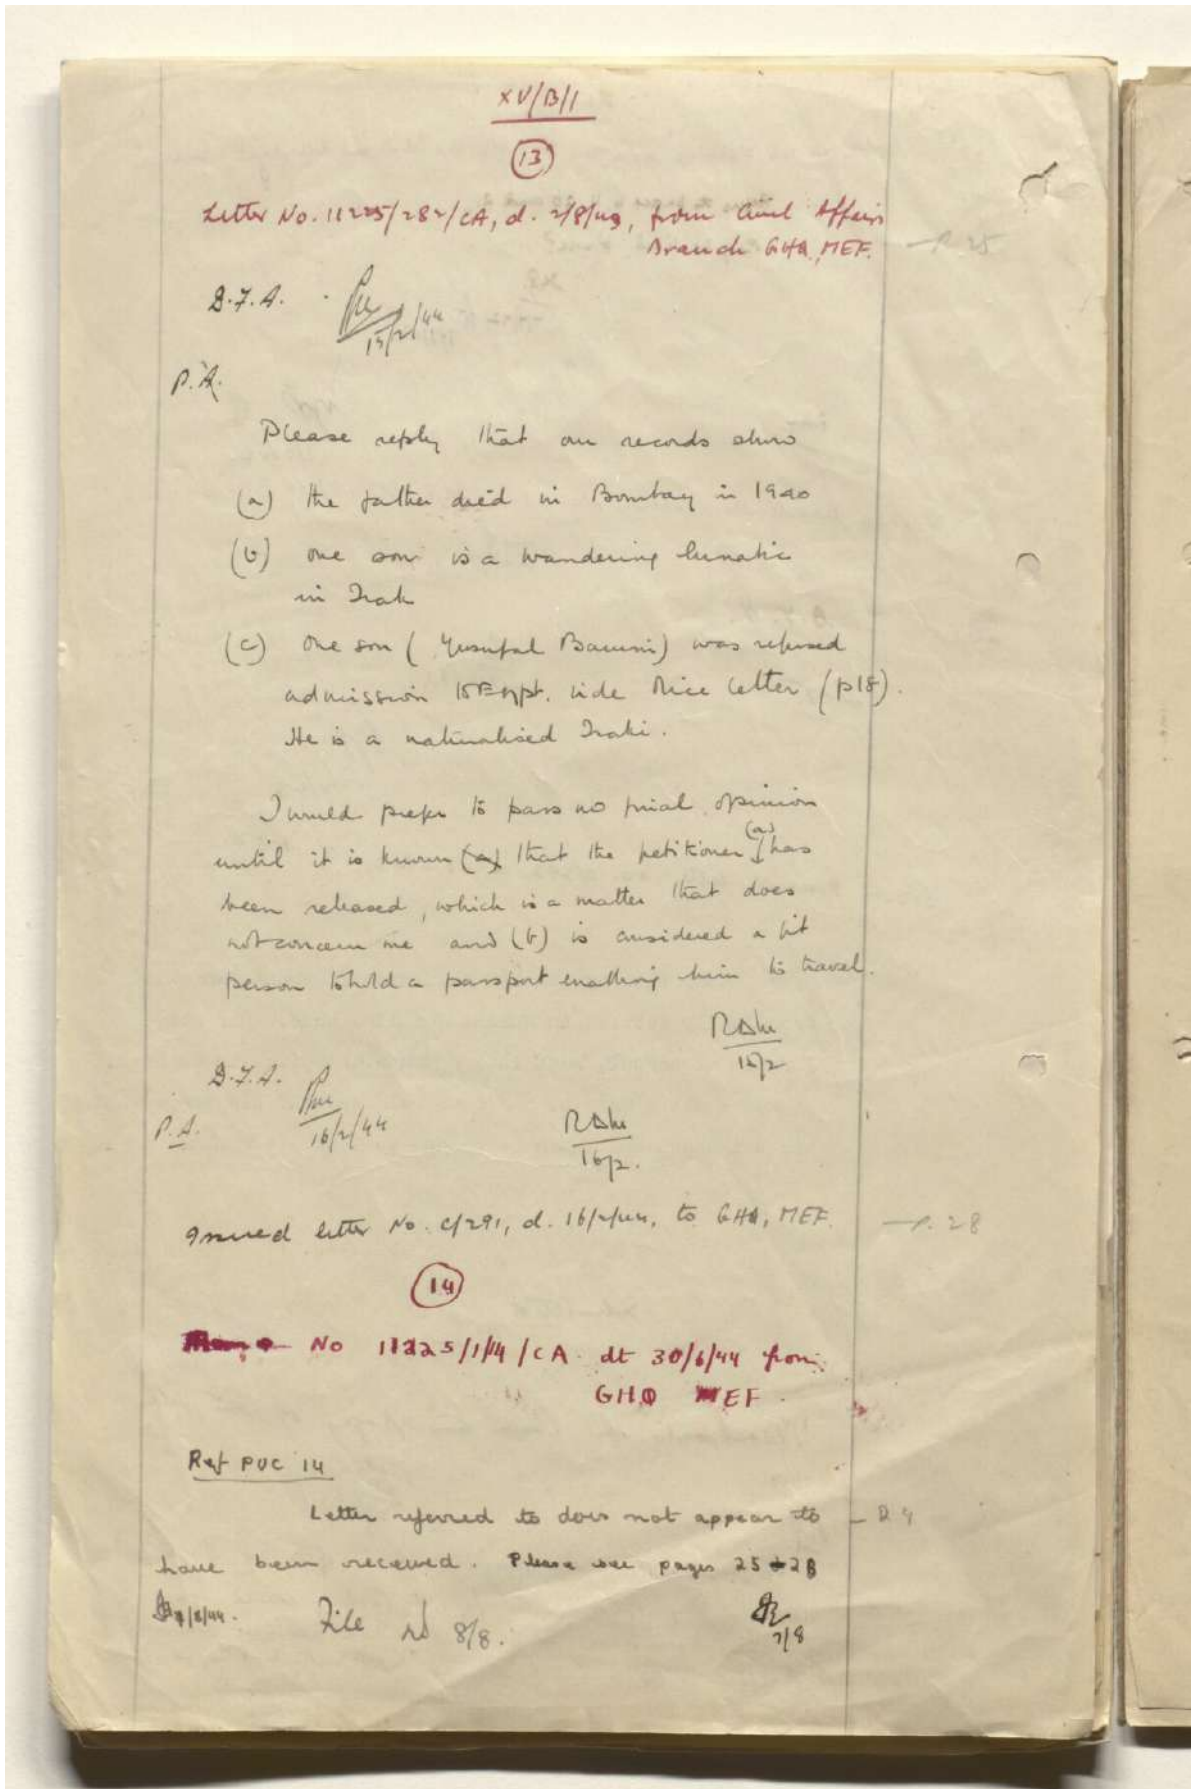 XV/B/1
13
Letter No. 11225/282/CA, d. 2/8/43, from Civil Affairs
Branch GHQ, MEF. — P. 25
D.F.A.
15/2/44
P.A.
Please reply that our records show
(a) the father died in Bombay in 1940
(b) one son is a wandering lunatic
in Irak
(c) one son ( Yusufal ) was refused
admission to Egypt. vide letter (p18).
He is a naturalised Iraki.
I would prefer to pass no final opinion
(a)
until it is known (a) that the petitioner has
been released, which is a matter that does
not concern me and (b) is considered a fit
person to hold a passport enabling him to travel.
16/2
D.F.A.
16/2/44
P.A.
16/2.
Issued letter No. C/291, d. 16/2/44, to GHQ, MEF. — P. 28
14
No 11225/1/14/CA dt 30/6/44 from
GHQ MEF.
Ref PUC 14
Letter referred to does not appear to
have been received. Please see pages 25 + 28
/8/44.
7/8
File 8/8.